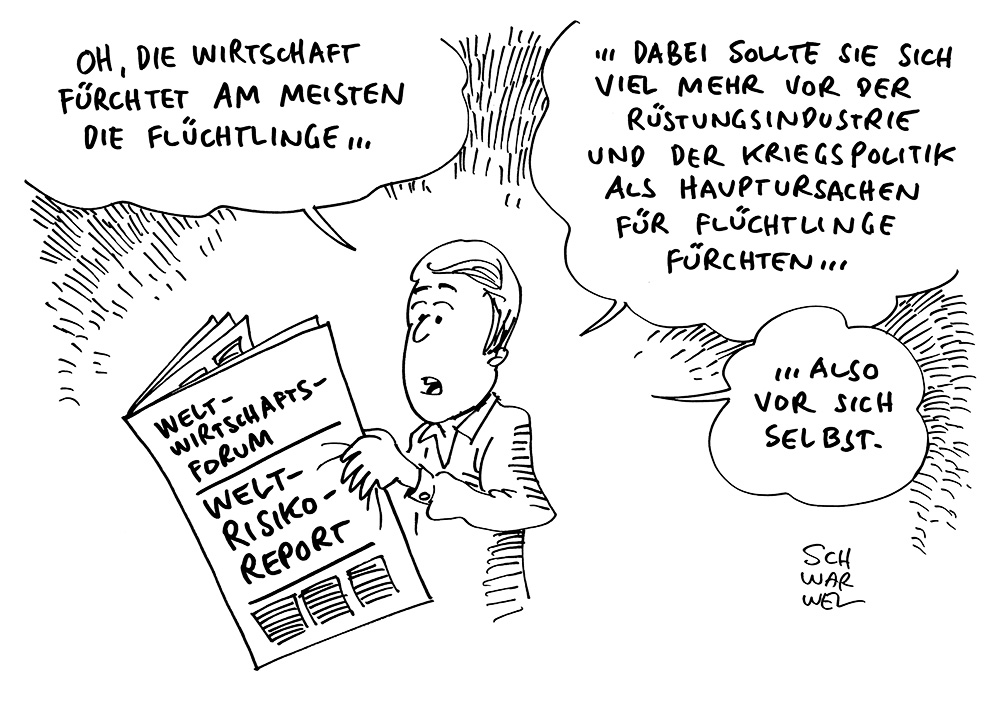 OH, DIE WIRTSCHAFT
FÜRCHTET AM MEISTEN
DIE FLÜCHTLINGE...
... DABEI SOLLTE SIE SICH
VIEL MEHR VOR DER
RÜSTUNGSINDUSTRIE
UND DER KRIEGSPOLITIK
ALS HAUPTURSACHEN
FÜR FLÜCHTLINGE
FÜRCHTEN...
... ALSO
VOR SICH
SELBST.
WELT-
WIRTSCHAFTS-
FORUM
WELT-
RISIKO-
REPORT
SCH
WAR
WEL